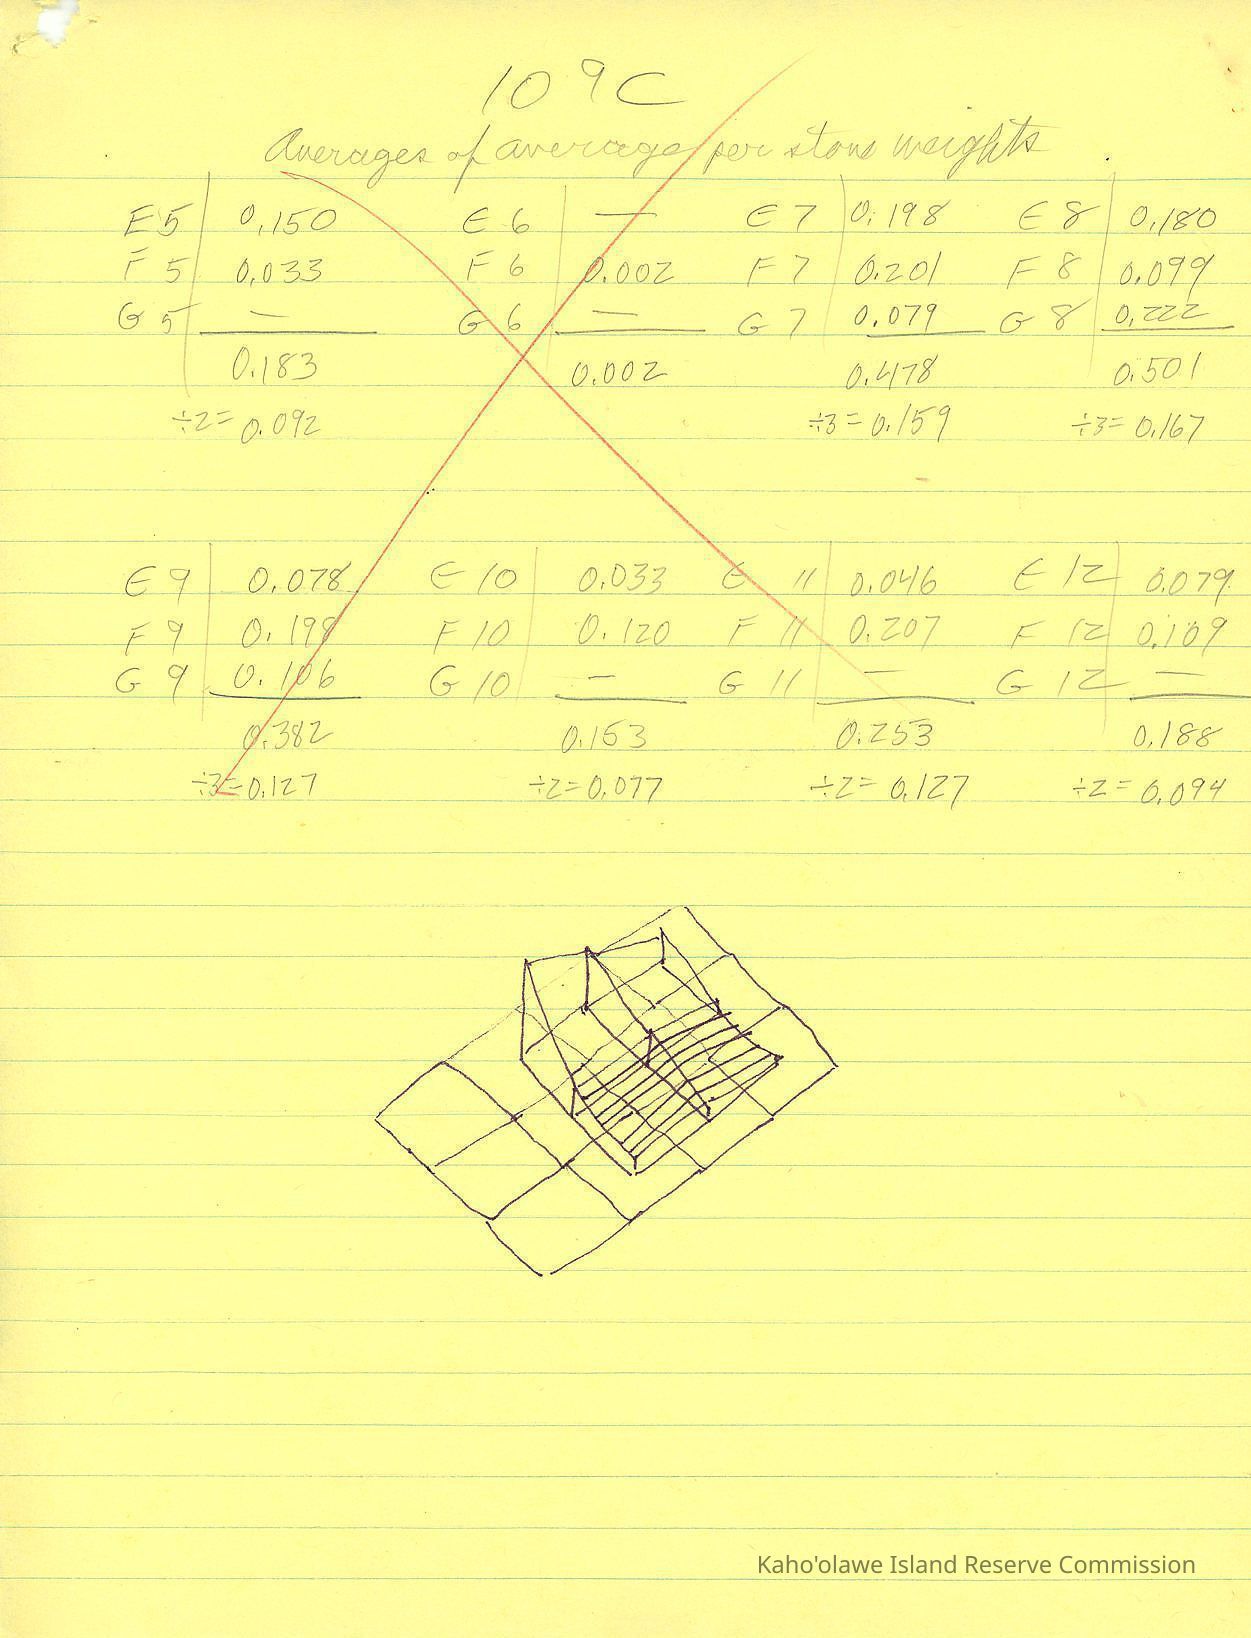 109C
Averages of average per stone weights
E5 0.150 E6 — E7 0.198 E8 0.180
F5 0.033 F6 0.002 F7 0.201 F8 0.099
G5 — G6 — G7 0.079 G8 0.222
0.183 0.002 0.478 0.501
÷2= 0.092 ÷3= 0.159 ÷3= 0.167
E9 0.078 E10 0.033 E11 0.046 E12 0.079
F9 0.198 F10 0.120 F11 0.207 F12 0.109
G9 0.106 G10 — G11 — G12 —
0.382 0.153 0.253 0.188
÷3=0.127 ÷2=0.077 ÷2= 0.127 ÷2= 0.094
Kaho'olawe Island Reserve Commission